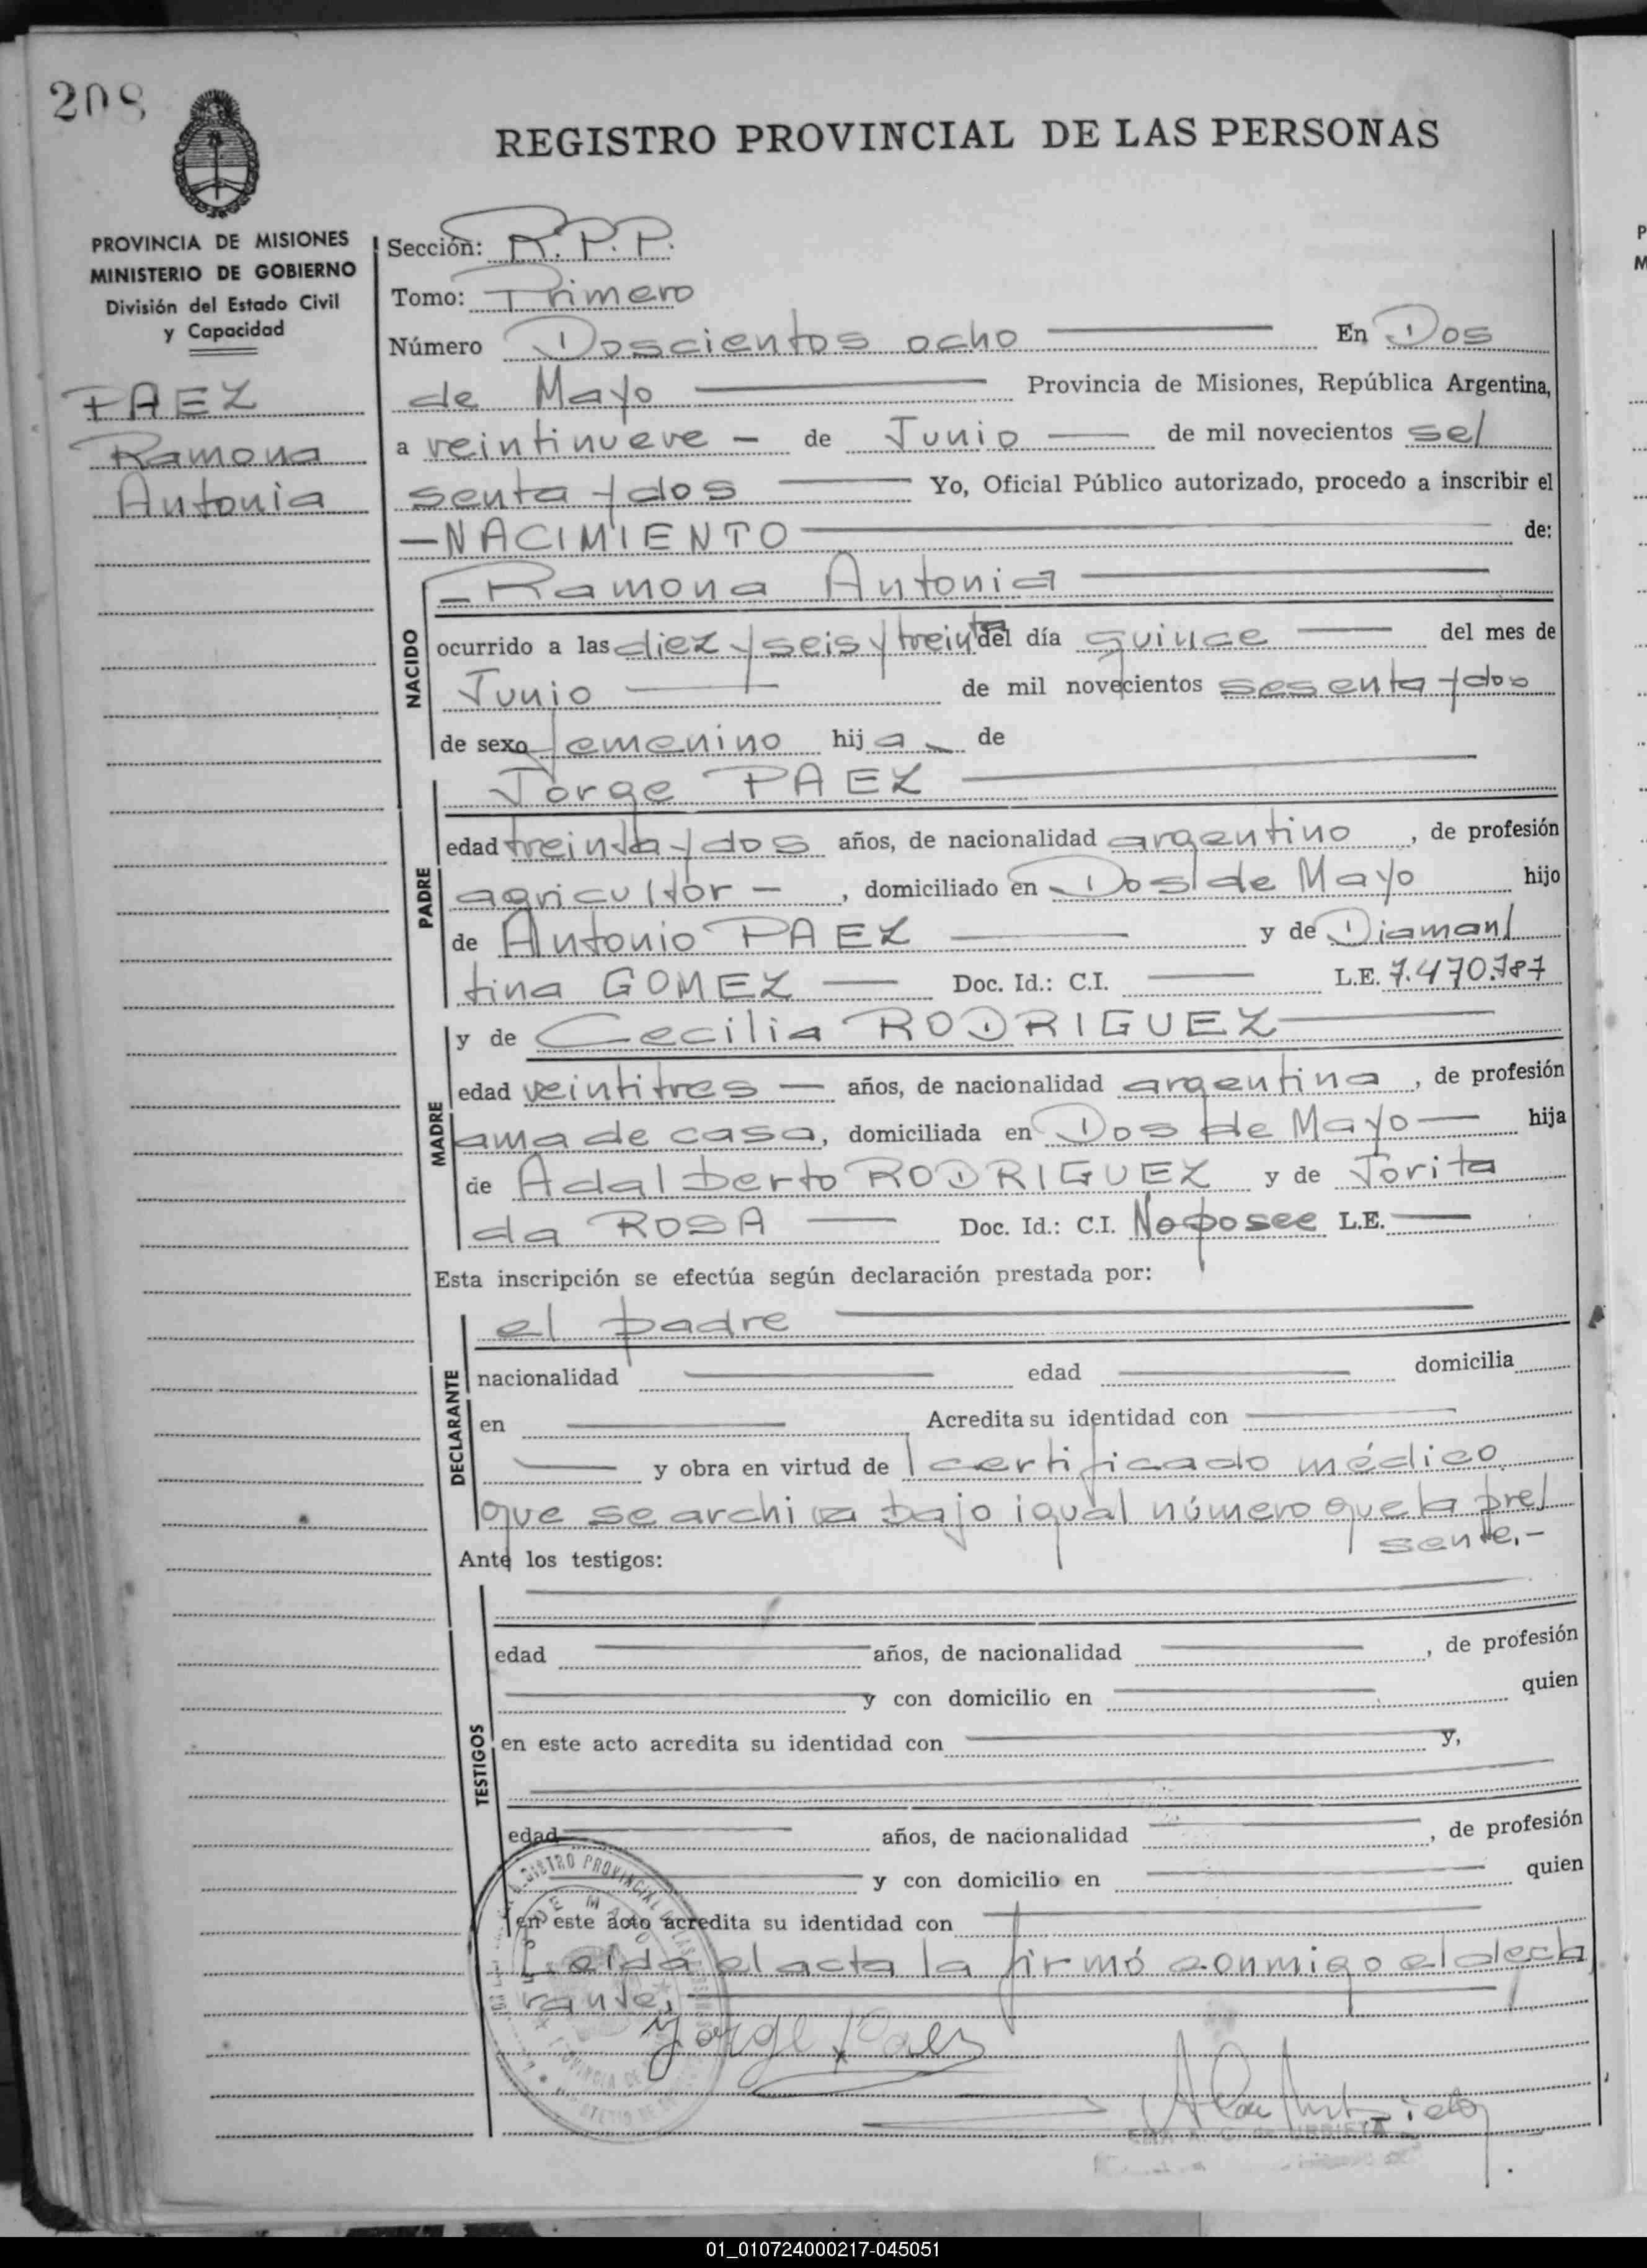 208
REGISTRO PROVINCIAL DE LAS PERSONAS
PROVINCIA DE MISIONES
MINISTERIO DE GOBIERNO
División del Estado Civil
y Capacidad
PAEZ
Ramona
Antonia
Sección: R.P.P.
Tomo: Primero
Número Doscientos ocho En Dos
de Mayo Provincia de Misiones, República Argentina,
a veintinueve - de Junio de mil novecientos se/
senta y dos Yo, Oficial Público autorizado, procedo a inscribir el
-NACIMIENTO de:
NACIDO
-Ramona Antonia
ocurrido a las diez y seis y treinta del día quince del mes de
Junio de mil novecientos sesenta y dos
de sexo femenino hija de
PADRE
Jorge PAEZ
edad treinta y dos años, de nacionalidad argentino, de profesión
agricultor -, domiciliado en Dos de Mayo hijo
de Antonio PAEZ y de Diaman/
tina GOMEZ Doc. Id.: C.I. L.E. 7.470.787
MADRE
y de Cecilia RODRIGUEZ
edad veintitres - años, de nacionalidad argentina, de profesión
ama de casa, domiciliada en Dos de Mayo hija
de Adalberto RODRIGUEZ y de Jorita
da ROSA Doc. Id.: C.I. No posee L.E.
Esta inscripción se efectúa según declaración prestada por:
DECLARANTE
el padre
nacionalidad edad domicilia
en Acredita su identidad con
y obra en virtud de certificado médico
que se archiva bajo igual número que la pre/
sente.-
Ante los testigos:
TESTIGOS
edad años, de nacionalidad , de profesión
y con domicilio en quien
en este acto acredita su identidad con y,
edad años, de nacionalidad , de profesión
y con domicilio en quien
en este acto acredita su identidad con
Leida el acta la firmó conmigo el decla
rante,
Jorge Paez
01_010724000217-045051